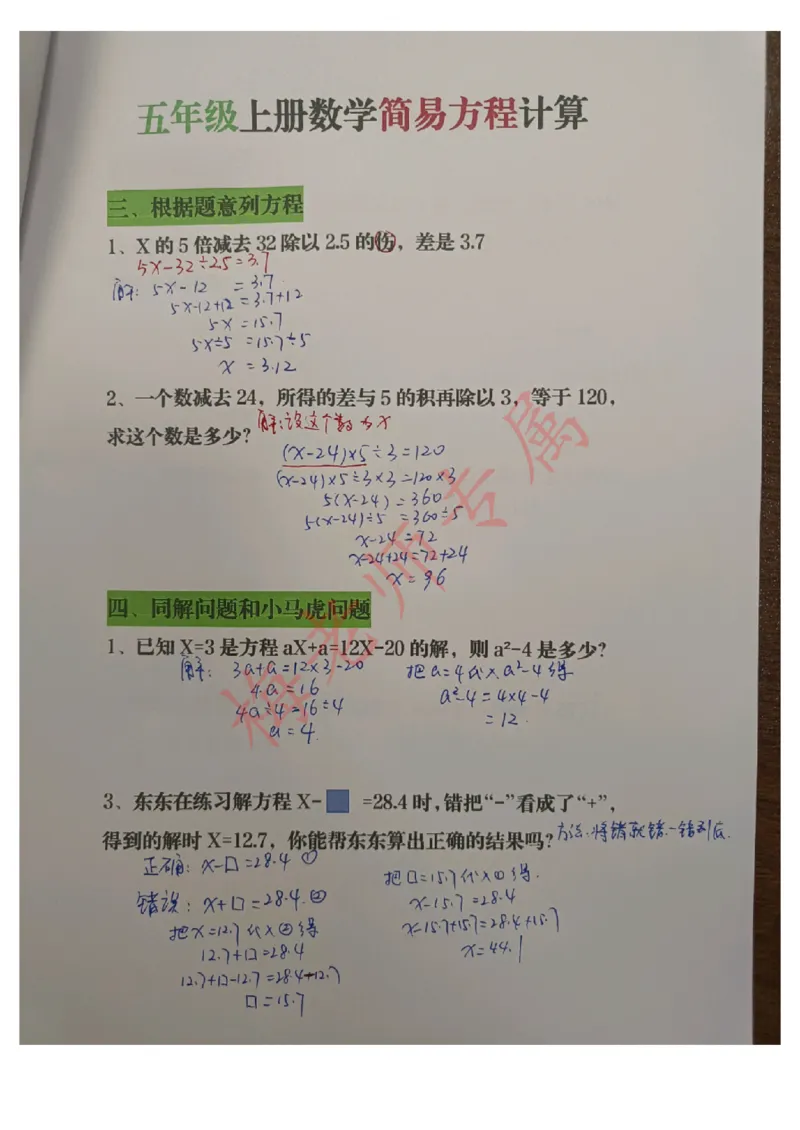 五年级上册数学简易方程计算
三、根据题意列方程
1、X 的 5 倍减去 32 除以 2.5 的伤，差是 3.7
5X-32÷2.5=3.7
解：5X-12 =3.7
5X-12+12=3.7+12
5X=15.7
5X÷5=15.7÷5
X=3.12
2、一个数减去 24，所得的差与 5 的积再除以 3，等于 120，
求这个数是多少？解:设这个数为X
(X-24)×5÷3=120
(X-24)×5÷3×3=120×3
5(X-24)=360
5(X-24)÷5=360÷5
X-24=72
X-24+24=72+24
X=96
四、同解问题和小马虎问题
1、已知 X=3 是方程 aX+a=12X-20 的解，则 a²-4 是多少？
解：3a+a=12×3-20
4a=16
4a÷4=16÷4
a=4
把a=4代入a²-4得
a²-4=4×4-4
=12
3、东东在练习解方程 X-□=28.4 时，错把“-”看成了“+”，
得到的解时 X=12.7，你能帮东东算出正确的结果吗？方法:将错就错.一错到底.
正确：X-□=28.4 ①
错误：X+□=28.4.②
把X=12.7代入②得
12.7+□=28.4
12.7+□-12.7=28.4-12.7
□=15.7
把□=15.7代入①得.
X-15.7=28.4
X-15.7+15.7=28.4+15.7
X=44.1
梅老师专属